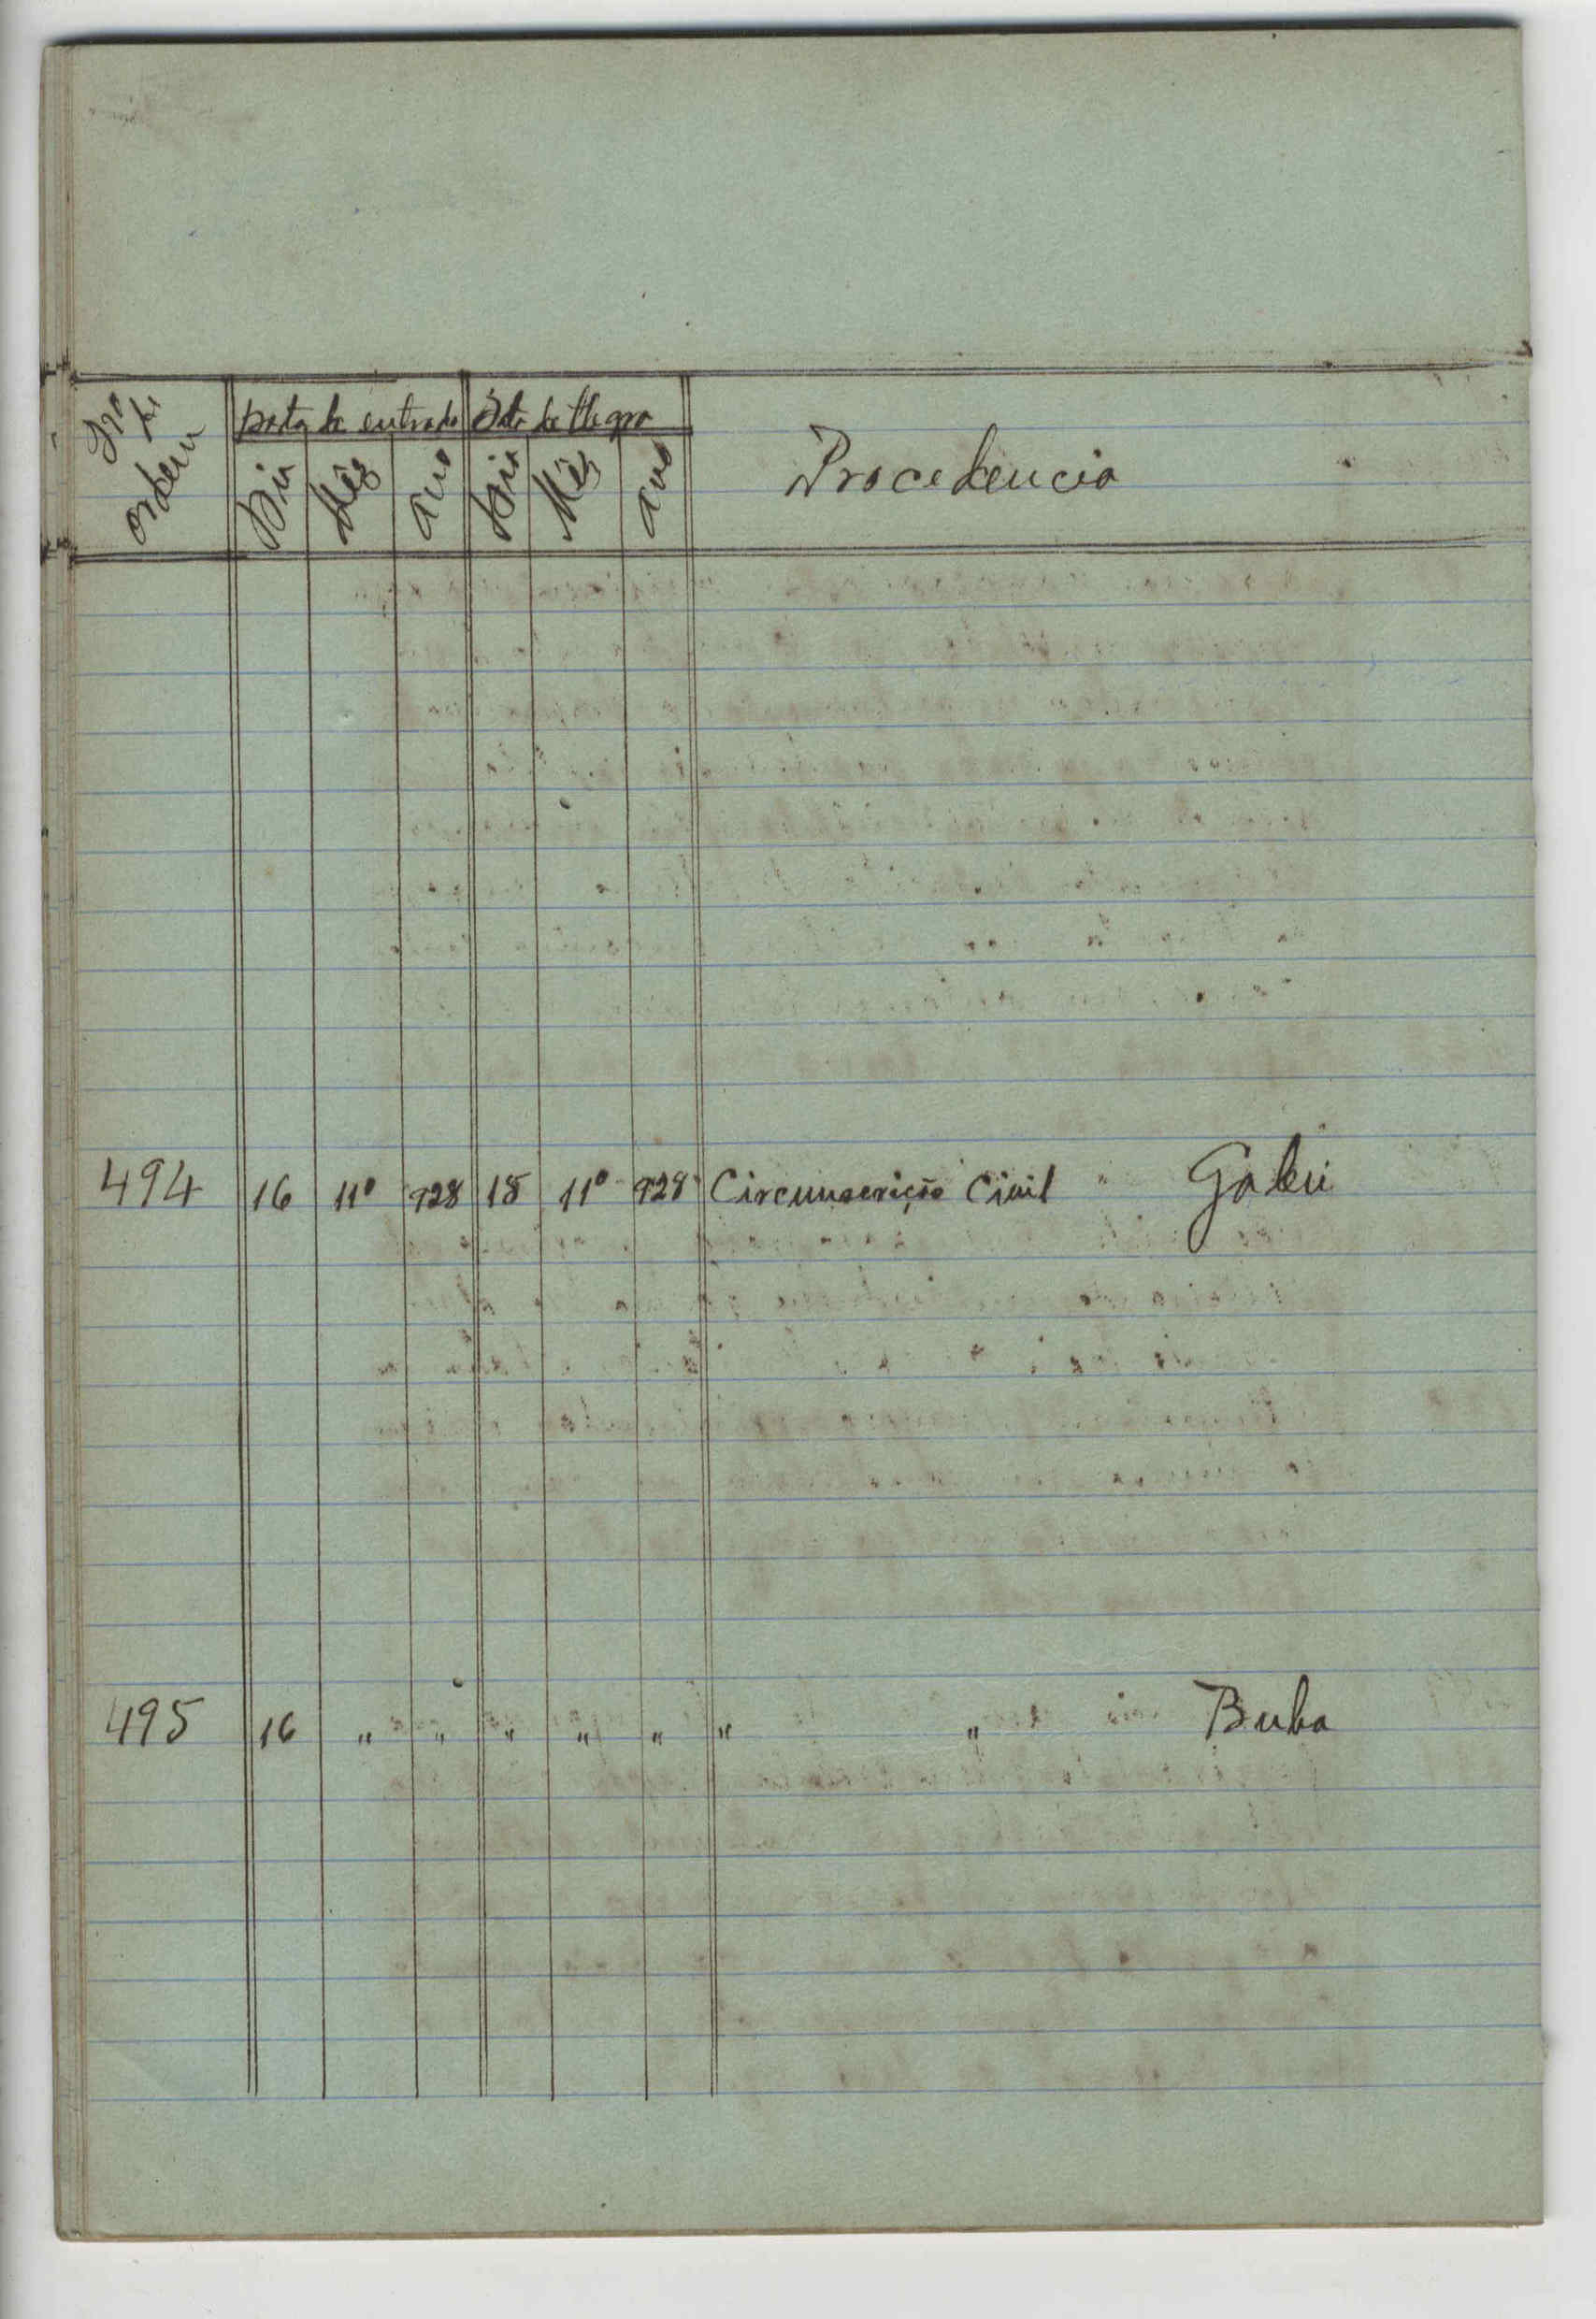 Nº de ordem
Data de entrada Data do tlegra
Dia Mês ano Dia Mês ano
Procedencia
494 16 11º 928 15 11º 928 Circunscrição Civil " Gabú
495 16 " " " " " " " Buba